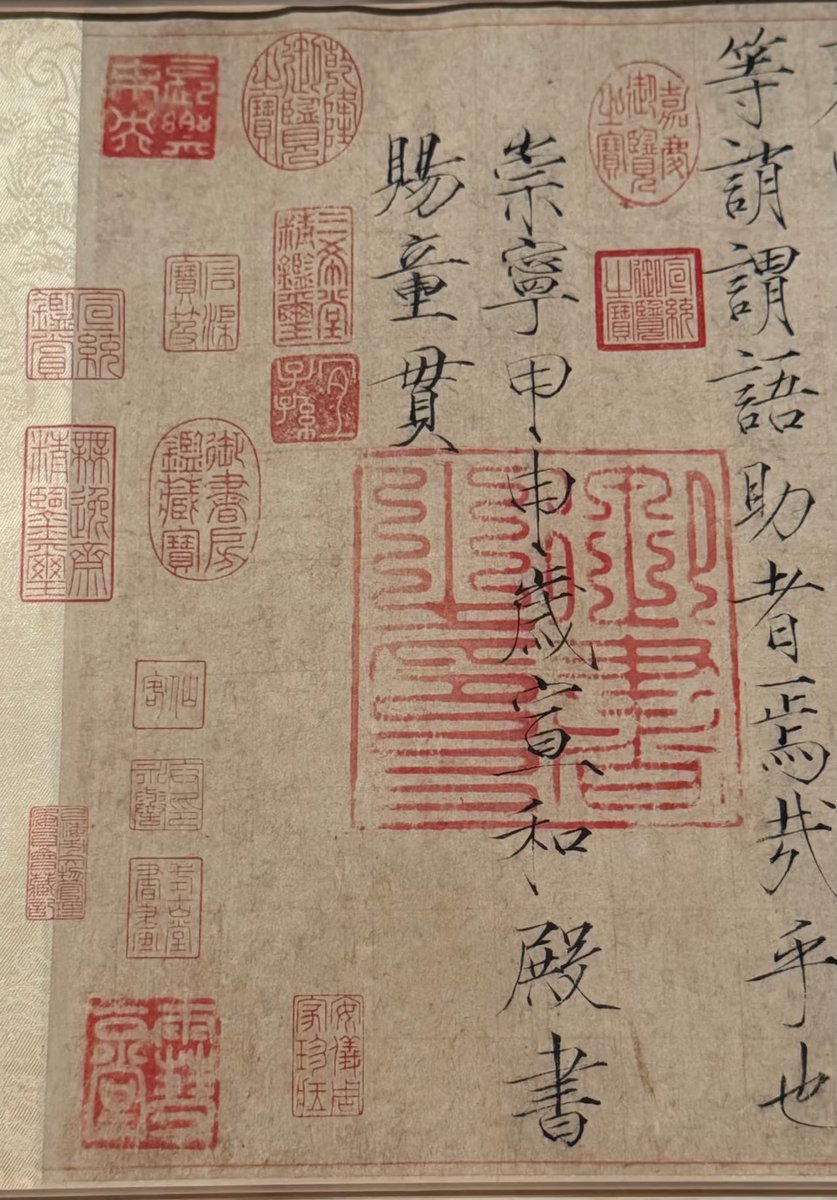 等誚謂語助者焉哉乎也
崇寧甲申歲宣和殿書
賜童貫
嘉慶御覽之寶
宣統御覽之寶
御書之寶
乾隆御覽之寶
三希堂精鑑璽
宜子孫
安儀周家珍藏
御書房鑑藏寶
仙客
宣統鑑賞
無逸齋精鑒璽